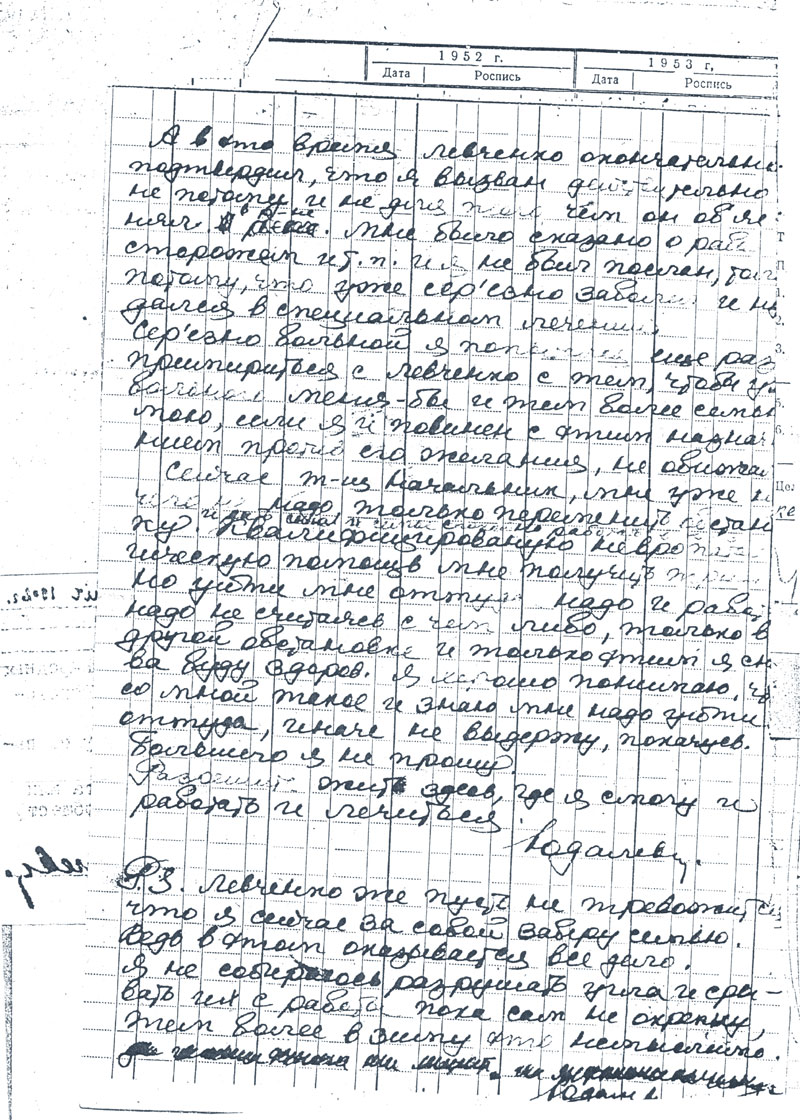 1952 г. 1953 г,
Дата Роспись Дата Роспись
А в это время Левченко окончательно
подтвердил, что я вызван действительно
не потому и не для того чем он об'яс
нял в р-не. Мне было сказано о раб
сторожем и т. п. и я не был послан,
потому, что уже сер'езно заболел и ну
дался в специальном лечении.
Сер'езно больной я попытался еще раз
примириться с Левченко с тем, чтобы
больного меня-бы и тем более семью
мою, если я и повинен с этим назнач
нием против его желания, не обижал
Сейчас т-щ Начальник, мне уже
надо только переменить обстан
ку. Квалифицированую невропато
гическую помощь мне получить
но уйти мне оттуда надо и работ
надо не считаясь с чем либо, только в
другой обстановке и только этим я сн
ва буду здоров. Я хорошо понимаю, что
со мной такое и знаю мне надо уйти
оттуда, иначе не выдержу, покачусь.
Большего я не прошу.
Разрешите жить здесь, где я смогу и
работать и лечиться
P.S. Левченко же пусть не тревожится
что я сейчас за собой заберу семью.
Ведь в этом оказывается все дело.
Я не собираюсь разрушать угла и сры-
вать их с работы пока сам не окрепну,
тем более в зиму это немыслимо.